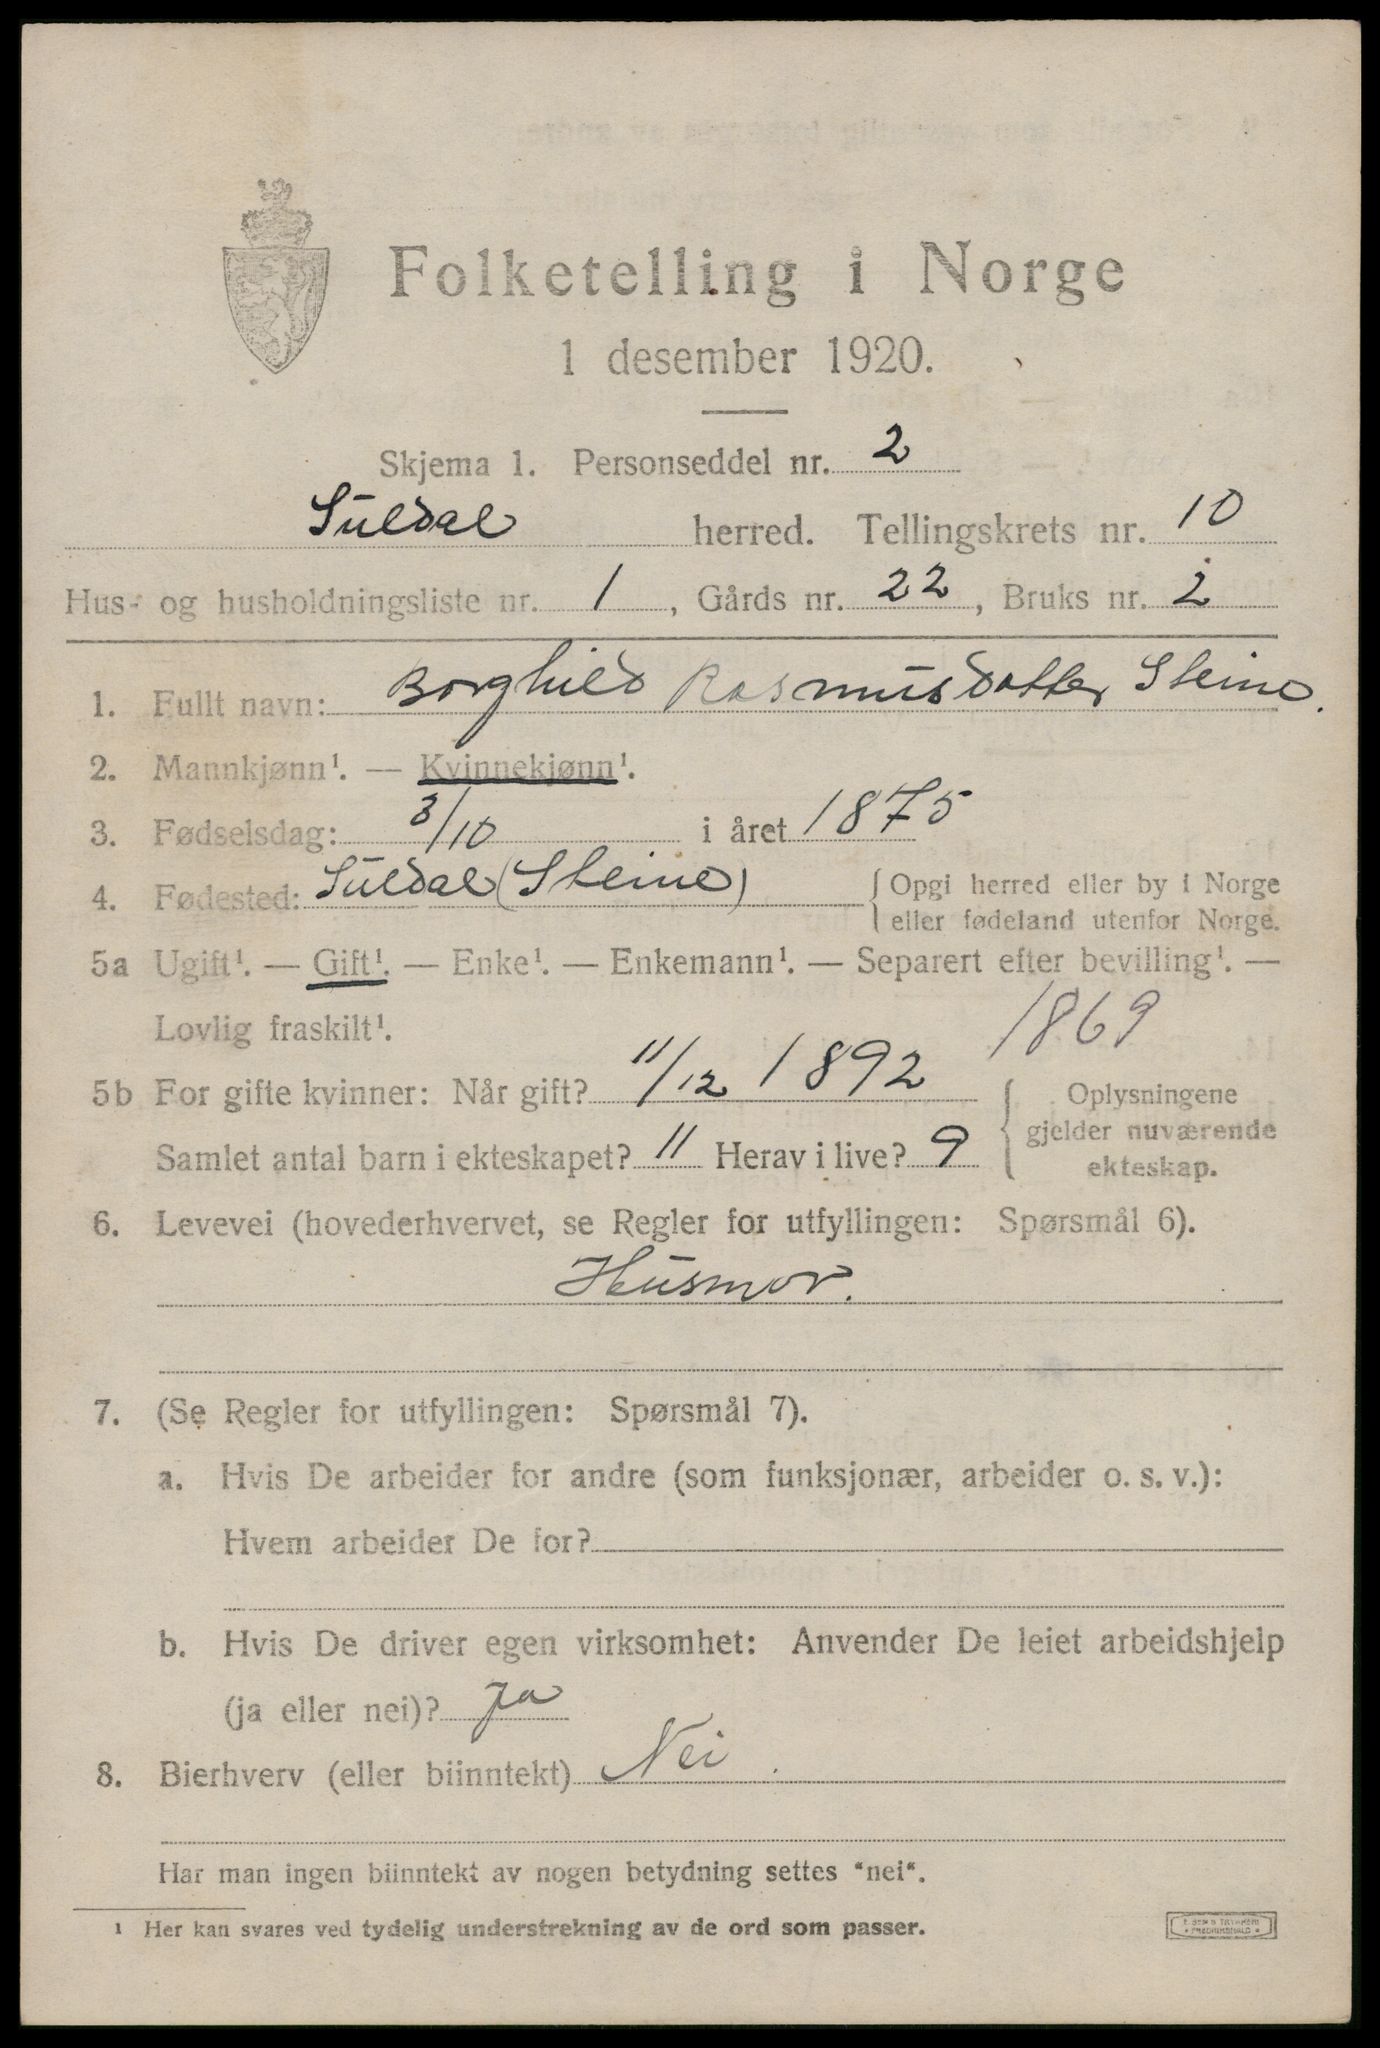 Folketelling i Norge
1 desember 1920.
Skjema 1. Personseddel nr. 2
Suldal herred. Tellingskrets nr. 10
Hus- og husholdningsliste nr. 1, Gårds nr. 22, Bruks nr. 2
1. Fullt navn: Borghild Rasmusdatter Steine.
2. Mannkjønn¹. — Kvinnekjønn¹.
3. Fødselsdag: 3/10 i året 1875
4. Fødested: Suldal (Steine) { Opgi herred eller by i Norge
eller fødeland utenfor Norge.
5a Ugift¹. — Gift¹. — Enke¹. — Enkemann¹. — Separert efter bevilling¹. —
Lovlig fraskilt¹.
1869
5b For gifte kvinner: Når gift? 11/12 1892 { Oplysningene
gjelder nuværende
Samlet antal barn i ekteskapet? 11 Herav i live? 9
ekteskap.
6. Levevei (hovederhvervet, se Regler for utfyllingen: Spørsmål 6).
Husmor.
7. (Se Regler for utfyllingen: Spørsmål 7).
a. Hvis De arbeider for andre (som funksjonær, arbeider o. s. v.):
Hvem arbeider De for?
b. Hvis De driver egen virksomhet: Anvender De leiet arbeidshjelp
(ja eller nei)? ja
8. Bierhverv (eller biinntekt) Nei.
Har man ingen biinntekt av nogen betydning settes "nei".
¹ Her kan svares ved tydelig understrekning av de ord som passer.